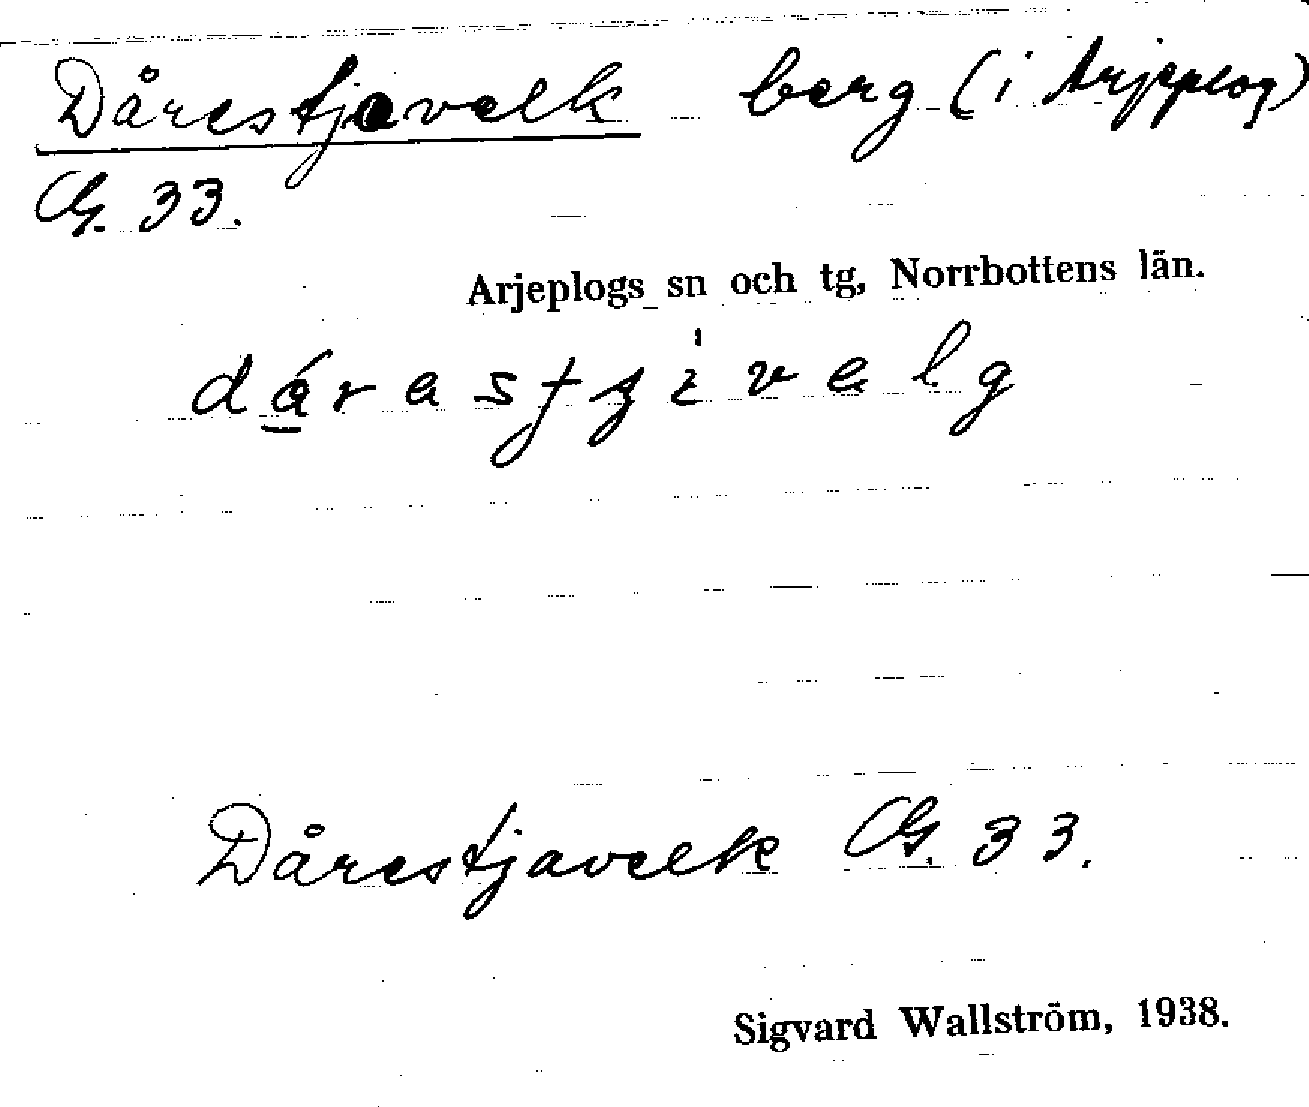 Dårestjavelk berg (i Arjeplog)
G. 33.
Arjeplogs sn och tg, Norrbottens län.
Dårestjavelk G. 33.
Sigvard Wallström, 1938.